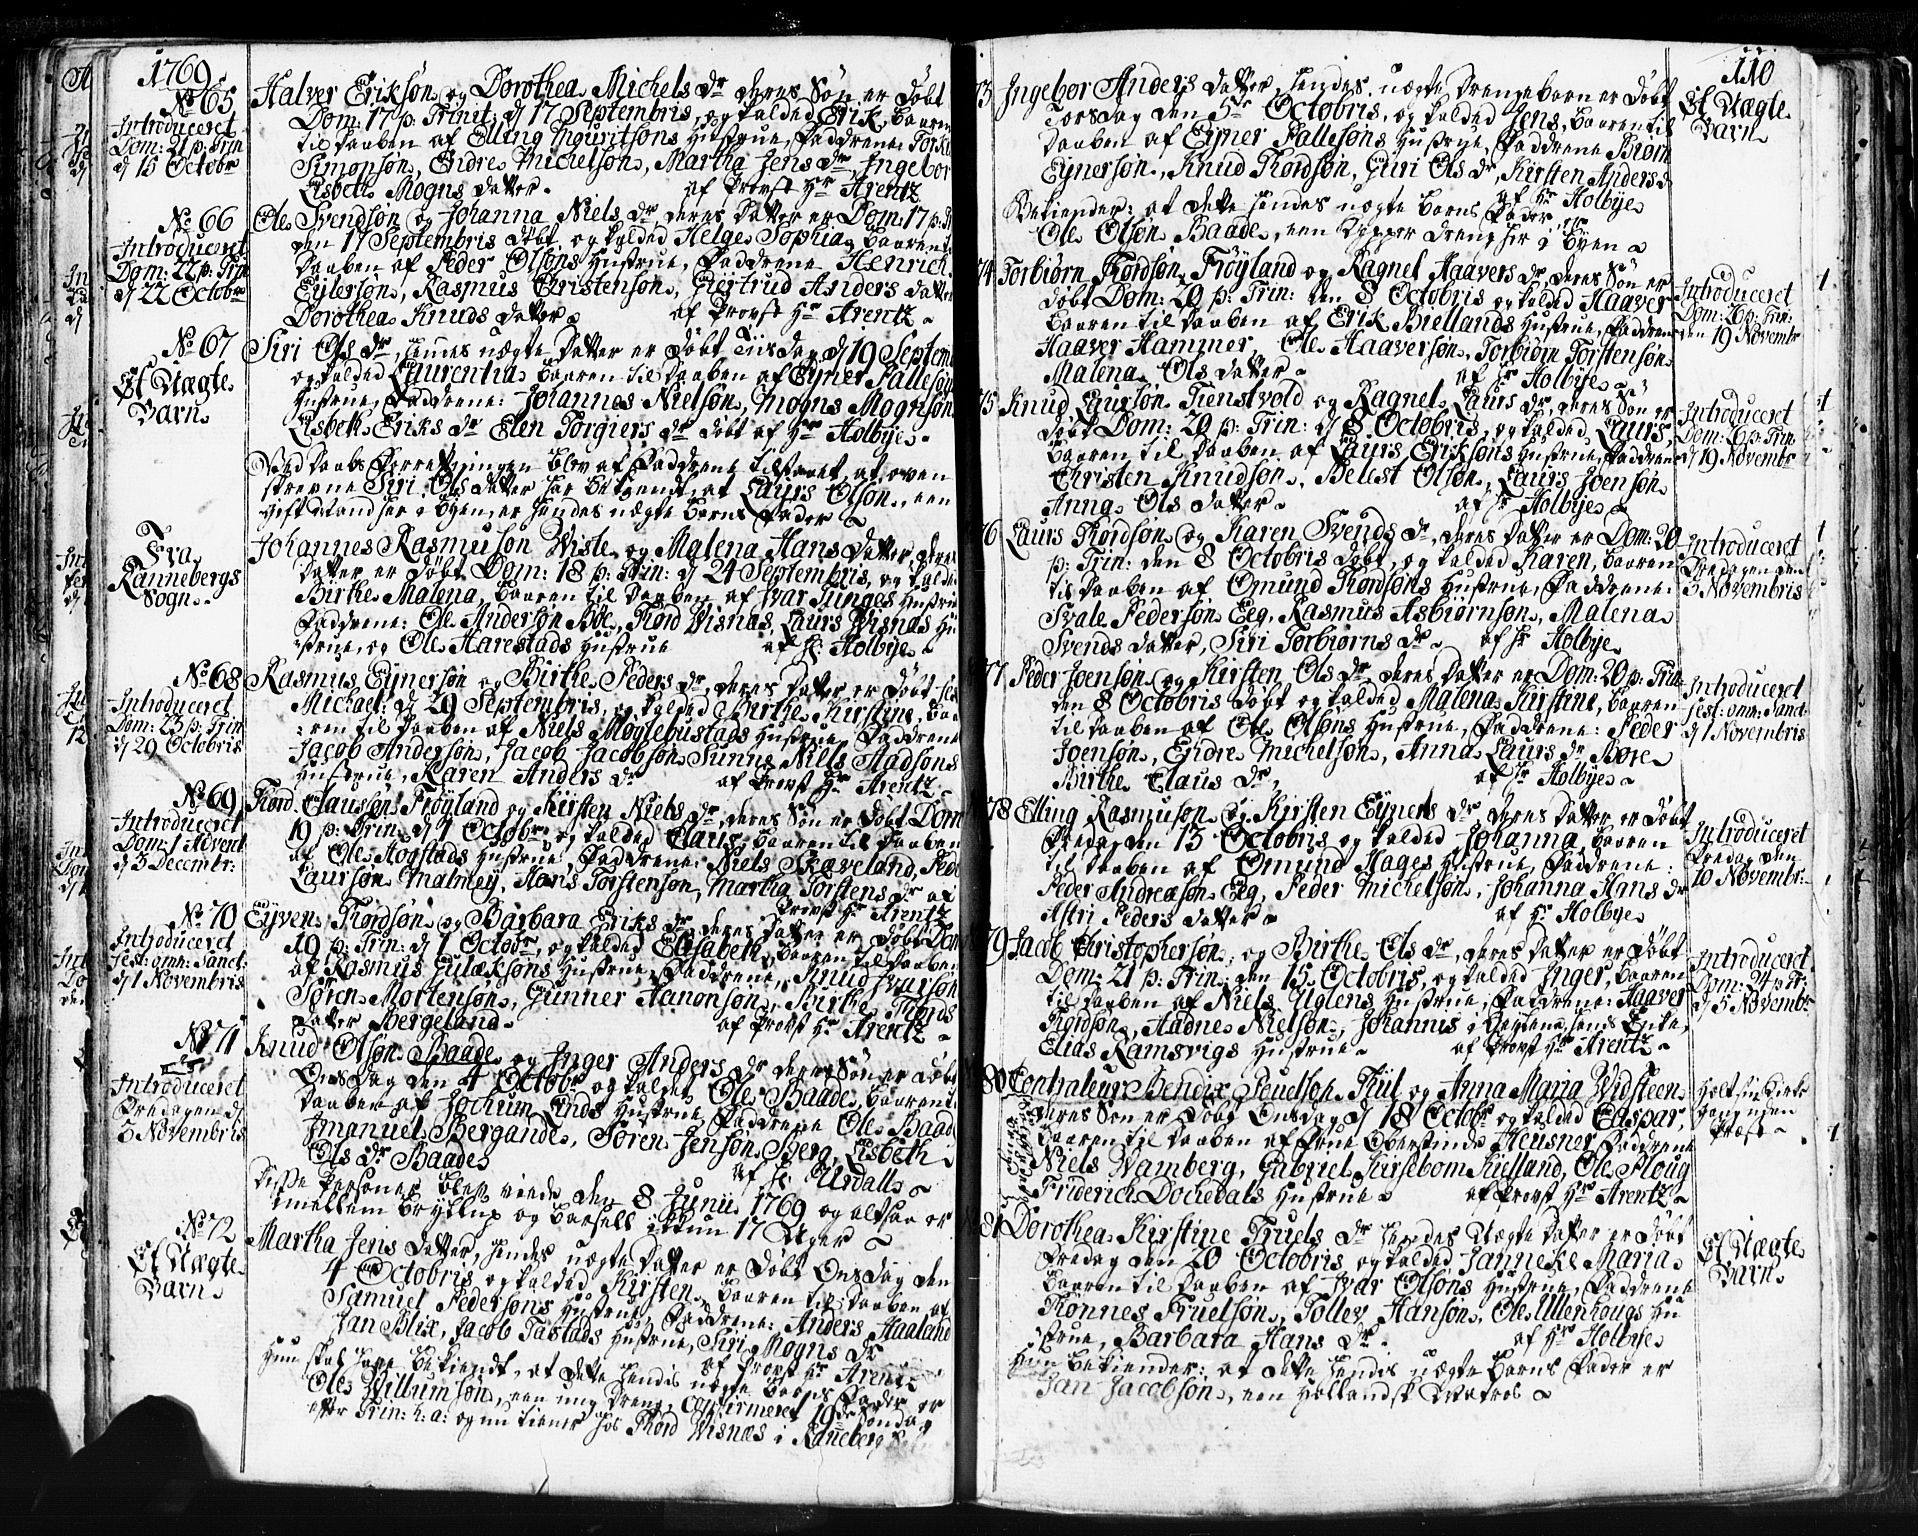 1769
No 65
Introduceret
Dom: 21 p: Trin
d 15 Octobr
Halver Eriksøn og Dorothea Michels dr deres Søn er døbt
Dom: 17 p: Trinit: d 17 Septembris, og kalded Erik, baaren
til daaben af Elling Mouritsøns Hustrue, Faddrene Torkel
Simonsøn, Endre Michelsøn, Martha Jens dr, Ingebor
Lisbeth Mogns datter. af Provst Hr Arentz
No 66
Introduceret
Dom: 22 p: Trin
d 22 Octobr
Ole Svendsøn og Johanna Niels dr deres datter er Dom: 17 p: Tr
den 17 Septembris døbt, og kalded Helge Sophia, baaren t
daaben af Peder Olsøns Hustrue, Faddrene Henrich
Eylersøn, Rasmus Christensøn, Giertrud Anders datter
Dorothea Knuds datter. af Provst Hr Arentz
No 67
Et Uægte
Barn
Siri Ols dr, hendes uægte datter er døbt Tiisdag d 19 Septem
og kalded Laurentia baaren til daaben af Eyner Pallesøns
Hustrue, Faddrene: Johannes Nielsøn, Mogns Mognsøn
Lisbeth Eriks dr Elen Torgiers dr døbt af Hr Holbye
Ved daabs Forretningen blev af Faddrene tilstaaet, at oven
skrevne Siri Ols datter har bekyendt, at Laurs Olsøn, een
gift Mand her i byen, er hendes uægte barns Fader
Fra
Rannebergs
Sogn
Johannes Rasmusøn Wiste og Malena Hans datter, deres
datter er døbt Dom: 18 p: Trin: d 24 Septembris, og kalded
Birthe Malena, baaren til daaben af Ivar Tunges Hustrue
Faddrene: Ole Andersøn Bøe, Thord Wisnæs, Laurs Wisnæs Hu
strue, og Ole Harestads Hustrue af H: Holbye
No 68
Introduceret
Dom: 23 p: Trin
d 29 Octobris
Rasmus Eynersøn og Birthe Peders dr, deres datter er døbt Fest
Michael: d 29 Septembris, og kalded Birthe Kirstine, baa
ren til daaben af Niels Møglebustads Hustrue, Faddrene
Jacob Andersøn, Jacob Jacobsøn Sunne, Niels Madsøns
Hustrue, Karen Anders dr af Provst Hr Arentz
No 69
Introduceret
Dom: 1 Advent
d 3 Decembr:
Thord Clausøn Frøyland og Kirsten Niels dr, deres Søn er døbt Dom
19 p: Trin: d 1 Octobr og kalded Claus, baaren til daaben
af Ole Hogstads Hustrue, Faddrene: Niels Skæveland, Peder
Laursøn Malmey, Hans Torstensøn, Martha Torstens dr af
Provst Hr Arentz
No 70
Introduceret
Fest: omn: Sanct
d 1 Novembris
Eyven Thordsøn og Barbara Eriks dr deres datter er døbt Dom
19 p: Trin: d 1 Octobr, og kalded Elisabeth, baaren til daaben
af Rasmus Gulaksøns Hustrue, Faddrene, Knud Ivarsøn
Søren Mortensøn, Gunner Aanonsøn, Birthe Thords
datter Bergeland af Provst Hr Arentz
No 71
Introduceret
Fredagen d
3 Novembris
Knud Olsøn Baade og Inger Anders dr deres Søn er døbt
Onsdag den 4 Octobr og kaldet Ole Baade, baaren t
daaben af Jochum Linds Hustrue Faddrene Ole Baade
Imanuel Bergande, Søren Jensøn Berg, Lisbeth
Ols dr Baade af H: Urdall
Disse Personer blev viede den 8 Junii 1769 og altsaa er
imellem bryllup og barsell ikkun 17 Uger
No 72
Et Uægte
Barn
Martha Jens datter, hendes uægte datter er døbt Onsdag den
4 Octobris og kalded Kirsten, baaren til daaben af
Samuel Pedersøns Hustrue, Faddrene: Anders Haaland
Jan Blix, Jacob Tastads Hustrue, Siri Mogns dr
af Provst Hr Arentz
Hun skal have bekiendt, at dette hendis uægte barns Fader er
Ole Willumsøn, een ung dreng, confirmeret 19de Søndag
efter Trin: h: a: og nu tiener hos Thord Wisnæs i Raneberg S
110
73 Ingebor Anders datter, hendes uægte drengebarn er døbt
Torsdag den 5te Octobris, og kalded Jens, baaren til
daaben af Eyner Pallesøns Hustrue, Faddrene Biørn
Eynersøn, Knud Thordsøn, Guri Ols dr, Kirsten Anders d
af Hr Holbye
Bekiender: at dette hendes uægte barns Fader er
Ole Olsøn Baade, een dreng her i Byen
Et Uægte
Barn
74 Torbiørn Thordsøn Frøyland og Ragnel Haavers dr, deres Søn er
døbt Dom: 20 p: Trin: den 8 Octobris og kalded Haaver
baaren til daaben af Erik Biellands Hustrue, Faddrene
Haaver Hammer, Ole Haaversøn, Torbiørn Torstensøn
Malena Ols datter af Hr Holbye
Introduceret
Dom: 26 p: Trin:
den 19 Novembr
75 Knud Laursøn Tienstvold og Ragnel Laurs dr, deres Søn er
døbt Dom: 20 p: Trin: d 8 Octobris, og kalded Laurs,
baaren til daaben af Laurs Eriksøns Hustrue, Faddrene
Christen Knudsøn, Belest Olsøn, Laurs Joensøn
Anna Ols datter af Hr Holbye
Introduceret
Dom: 26 p: Trin
d 19 Novembr
76 Laurs Thordsøn og Karen Svends dr, deres datter er Dom: 20
p: Trin: den 8 Octobris døbt, og kalded Karen, baaren
til daaben af Omund Thordsøns Hustrue, Faddrene:
Svale Pedersøn Eeg, Rasmus Asbiørnsøn, Malena
Svends datter, Siri Torbiørns dr af Hr Holbye
Introduceret
Fredagen den
3 Novembris
77 Peder Joensøn og Kirsten Ols dr, deres datter er Dom: 20 p: Trin
den 8 Octobris døbt og kalded Malena Kirstine, baaren
til daaben af Ole Olsøns Hustrue, Faddrene: Peder
Joensøn, Endre Michelsøn, Anna Laurs dr Bore
Birthe Claus dr, af Hr Holbye
Introduceret
Fest: omn: Sanct:
d 1 Novembris
78 Elling Rasmusøn og Kirsten Eyners dr deres datter er døbt
Fredag den 13 Octobris og kalded Johanna, baaren
til daaben af Omund Hages Hustrue, Faddrene:
Peder Andreasøn Eeg, Peder Michelsøn, Johanna Hans dr
Astri Peders datter af Hr Holbye
Introduceret
Fredag den
10 Novembr:
79 Jacob Christophersøn, og Birthe Ols dr, deres datter er døbt
Dom: 21 p: Trin: den 15 Octobris, og kalded Inger, baaren
til daaben af Niels Uglens Hustrue, Faddrene: Haaver
Thordsøn, Aadne Nielsøn, Johannis i hends Enke,
Elias Ramsvigs Hustrue af Provst Hr Arentz
Introduceret
Dom: 24 p Tr:
d 5 Novembr
80 Contraleur Bendix Povelsøn Thiil og Anna Maria Widsteen
deres Søn er døbt Onsdag d 18 Octobr og kalded Caspar,
baaren til daaben af Frue Oberstinde Heusner, Faddrene
Niels Wamberg, Gabriel Kirsebom Kielland, Ole Ploug
Friderich Dochedals Hustrue af Provst Hr Arentz
Holt sin Kirke
gang uden
Præst
81 Dorothea Kirstine Truels dr hendes Uægte datter er døbt
Fredag den 20 Octobris og kalded Janneke Maria
baaren til daaben af Ivar Olsøns Hustrue, Faddrene
Thønnes Truelsøn, Tollev Hansøn, Ole Ullenhougs Hu
strue, Barbara Hans dr. af Hr Holbye
Hun bekiender: at dette hendis uægte barns Fader er
Jan Jacobsøn, een Hollandsk Matros
Et Uægte
Barn